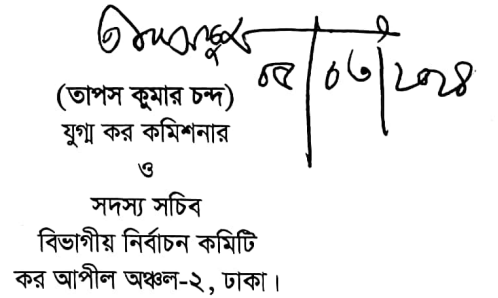 ০৫/০৬/২০২৪
(তাপস কুমার চন্দ)
যুগ্ম কর কমিশনার
ও
সদস্য সচিব
বিভাগীয় নির্বাচন কমিটি
কর আপীল অঞ্চল-২, ঢাকা।